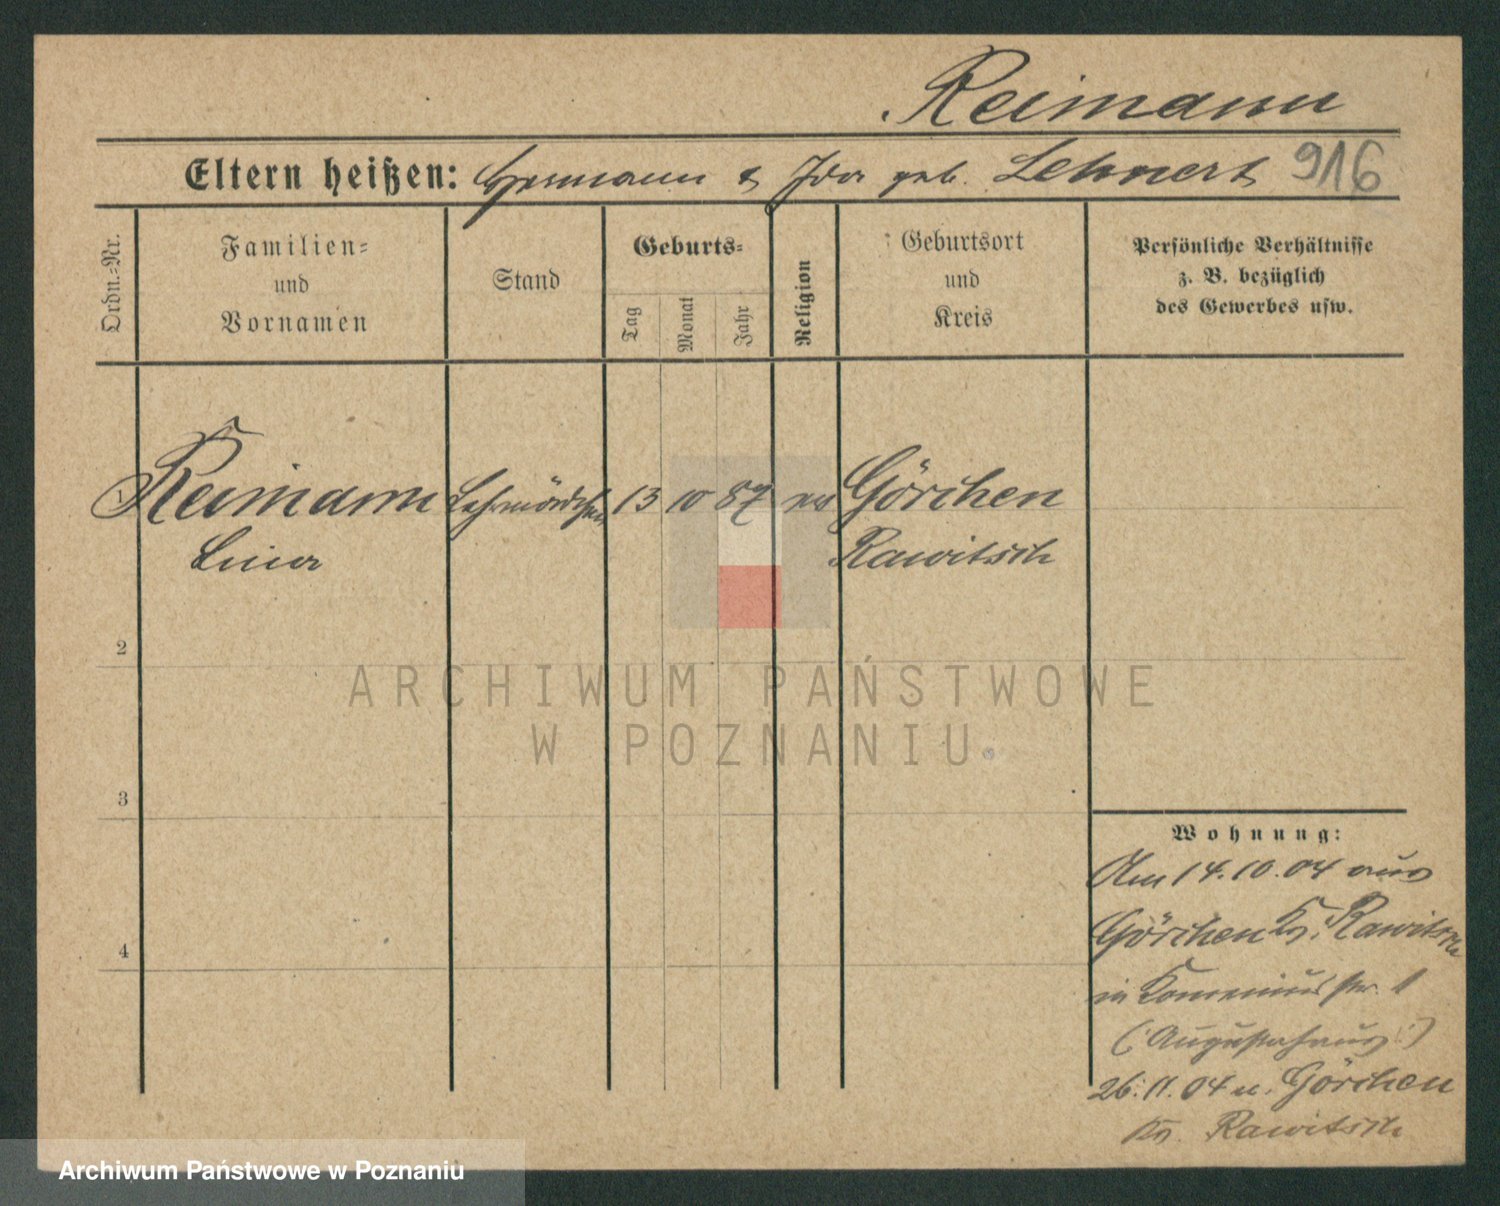 Reimann
Eltern heißen: Hermann & Ida geb. Lehnert 916
Ordn.=Nr.
Familien=
und
Vornamen
Stand
Geburts=
Tag
Monat
Jahr
Religion
Geburtsort
und
Kreis
Persönliche Verhältnisse
z. B. bezüglich
des Gewerbes usw.
1 Reimann Lehrmädchen 13 10 87 Görchen
Lina Rawitsch
2
3
4
Wohnung:
Am 14.10.04 aus
Görchen Kr. Rawitsch
in Komenius str. 1
(Augustahaus)
26.11.04 n. Görchen
Kr. Rawitsch
ARCHIWUM PAŃSTWOWE
W POZNANIU
Archiwum Państwowe w Poznaniu